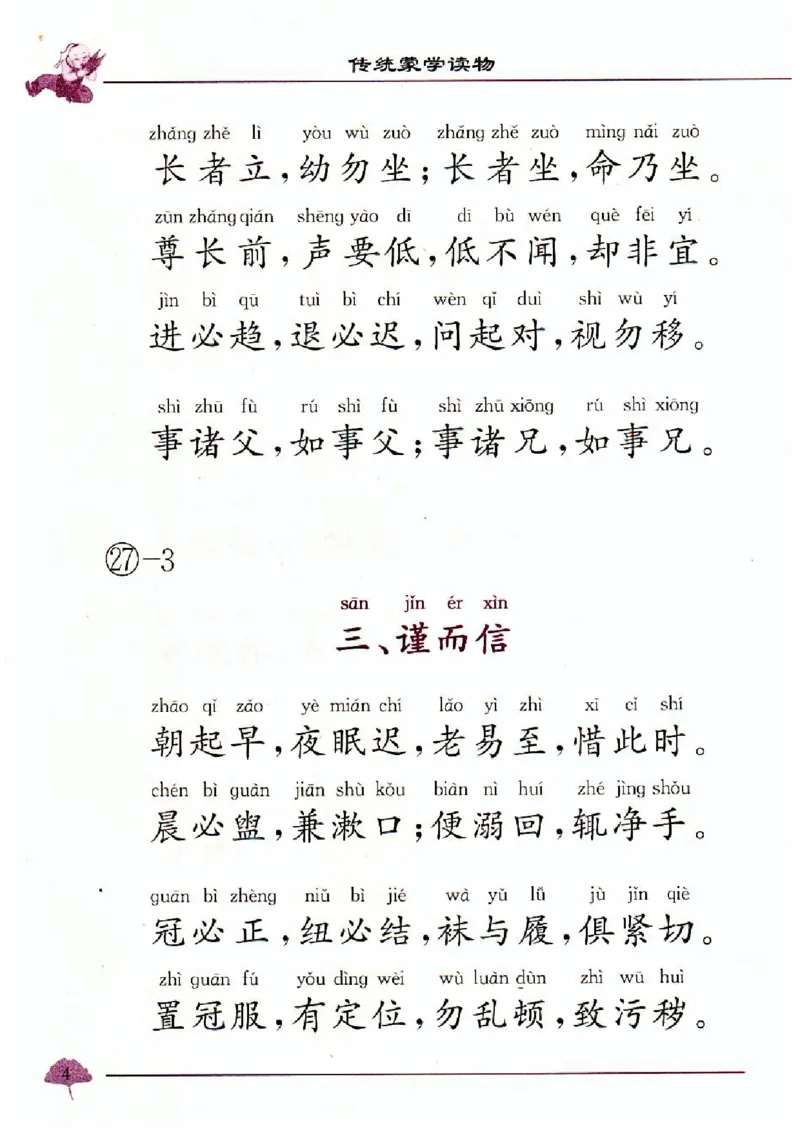 传统蒙学读物
zhǎng zhě lì yòu wù zuò zhǎng zhě zuò mìng nǎi zuò
长者立，幼勿坐；长者坐，命乃坐。
zūn zhǎng qián shēng yào dī dī bù wén què fēi yí
尊长前，声要低，低不闻，却非宜。
jìn bì qū tuì bì chí wèn qǐ duì shì wù yí
进必趋，退必迟，问起对，视勿移。
shì zhū fù rú shì fù shì zhū xiōng rú shì xiōng
事诸父，如事父；事诸兄，如事兄。
㉗-3
sān jǐn ér xìn
三、谨而信
zhāo qǐ zǎo yè mián chí lǎo yì zhì xī cǐ shí
朝起早，夜眠迟，老易至，惜此时。
chén bì guàn jiān shù kǒu biàn nì huí zhé jìng shǒu
晨必盥，兼漱口；便溺回，辄净手。
guān bì zhèng niǔ bì jié wà yǔ lǚ jù jǐn qiè
冠必正，纽必结，袜与履，俱紧切。
zhì guān fú yǒu dìng wèi wù luàn dùn zhì wū huì
置冠服，有定位，勿乱顿，致污秽。
4